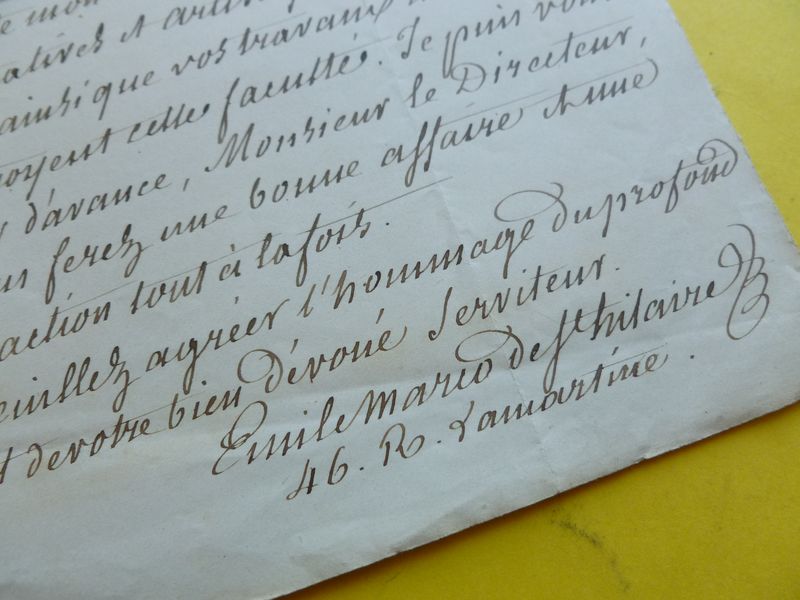 e mon
atives et artis
ainsi que vos travaux
oyent cette faculté. Je puis vou
d'avance, Monsieur le Directeur,
us ferez une bonne affaire & une
action tout à la fois.
euillez agréer l'hommage du profond
t de votre bien dévoué Serviteur.
Emile Marco de St hilaire
46. R. Lamartine.